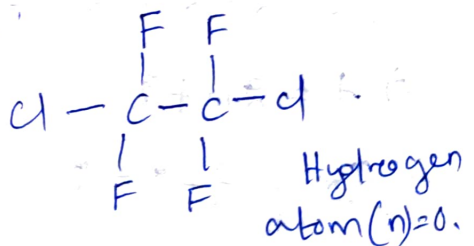 F F
Cl - C - C - Cl .
F F
Hydrogen
atom (n)=0.